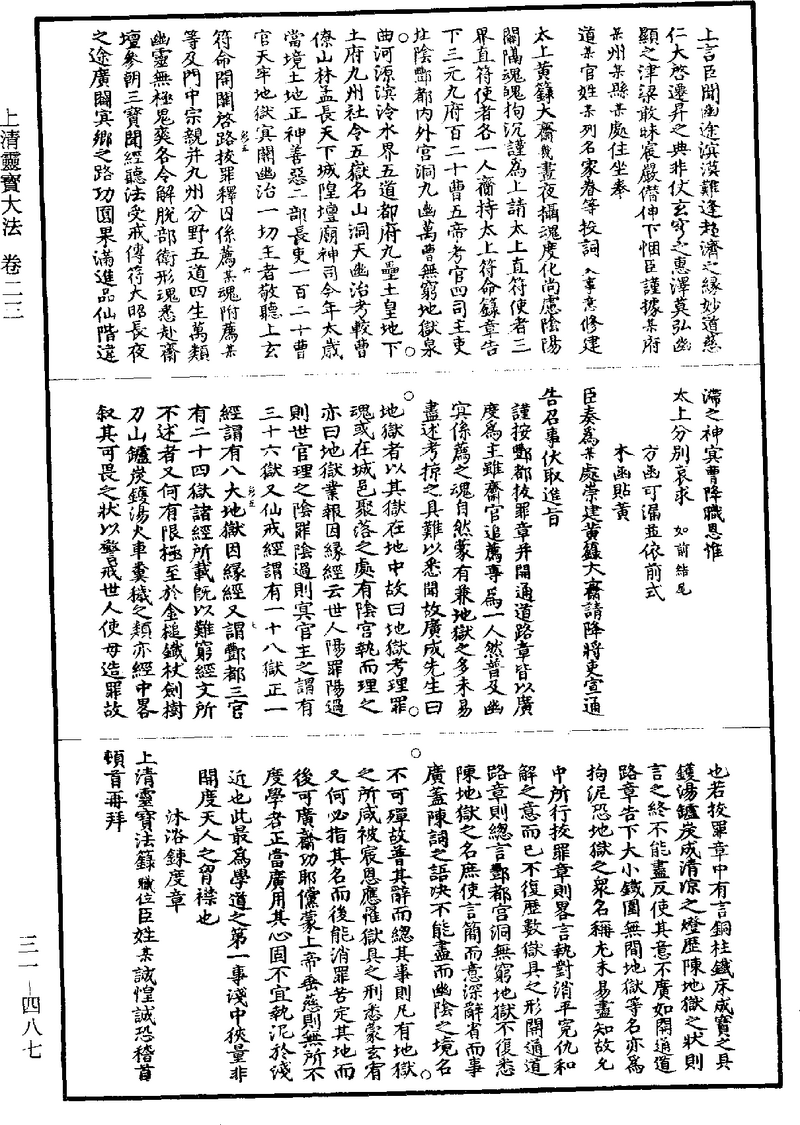 上言臣聞幽途溟漠難逢超濟之緣妙道慈
仁大啓遷昇之典非仗玄穹之惠澤莫弘幽
顯之津梁敢昧宸嚴僭伸下悃臣謹據某府
某州某縣某處住坐奉
道某官姓某列名家眷等投詞入事意修建
太上黃籙大齋幾晝夜攝魂度化尚慮陰陽
關隔魂魄拘沉謹為上請太上直符使者三
界直符使者各一人齎持太上符命錄章告
下三元九府百二十曹五帝考官四司主吏
北陰酆都內外宮洞九幽萬曹無窮地獄泉
曲河源溟泠水界五道都府九壘土皇地下
土府九州社令五嶽名山洞天幽治考較曹
僚山林孟長天下城隍壇廟神司今年太歲
當境土地正神善惡二部長吏一百二十曹
官天牢地獄冥關幽治一切主者敬聽上玄
符命開闡啓路拔罪釋囚係薦某魂附薦某
等及門中宗親并九州分野五道四生萬類
幽靈無極鬼爽各令解脫部衛形魂悉赴齋
壇參朝三寶聞經聽法受戒傳符大昭長夜
之途廣闢冥鄉之路功圓果滿進品仙階違
滯之神冥曹降職恩惟
太上分別哀求如前結尾
方函可漏並依前式
本函貼黃
臣奏為某處崇建黃籙大齋請降將吏宣通
告召事伏取進旨
謹按酆都拔罪章并開通道路章皆以廣
度為主雖齋官追薦專為一人然普及幽
冥係薦之魂自然蒙有兼地獄之多未易
盡述考掠之具難以悉聞故廣成先生曰
地獄者以其獄在地中故曰地獄考理罪
魂或在城邑聚落之處有陰宮執而理之
亦曰地獄業報因緣經云世人陽罪陽過
則世官理之陰罪陰過則冥官主之謂有
三十六獄又仙戒經謂有一十八獄正一
經謂有八大地獄因緣經又謂酆都三官
有二十四獄諸經所載既以難窮經文所
不述者又何有限極至於金槌鐵杖劍樹
刀山鑪炭鑊湯火車糞穢之類亦經中畧
敘其可畏之狀以警戒世人使毋造罪故
也若拔罪章中有言銅柱鐵床成寶之具
鑊湯鑪炭成清涼之燈歷陳地獄之狀則
言之終不能盡反使其意不廣如開通道
路章告下大小鐵圍無間地獄等名亦為
拘泥恐地獄之衆名稱尤未易盡知故允
中所行拔罪章則畧言執對消平冤仇和
解之意而已不復歷數獄具之形開通道
路章則總言酆都宮洞無窮地獄不復悉
陳地獄之名庶使言簡而意深辭省而事
廣蓋陳詞之語決不能盡而幽陰之境名
不可殫故普其辭而總其事則凡有地獄
之所咸被宸恩應罹獄具之刑悉蒙玄宥
又何必指其名而後能消罪苦定其地而
後可廣齋功耶儻蒙上帝垂慈則無所不
度學者正當廣用其心固不宜執泥於淺
近也此最為學道之第一事淺中狹量非
開度天人之胷襟也
沐浴鍊度章
上清靈寶法籙職位臣姓某誠惶誠恐稽首
頓首再拜
上清靈寶大法 卷二二
三一-四八七